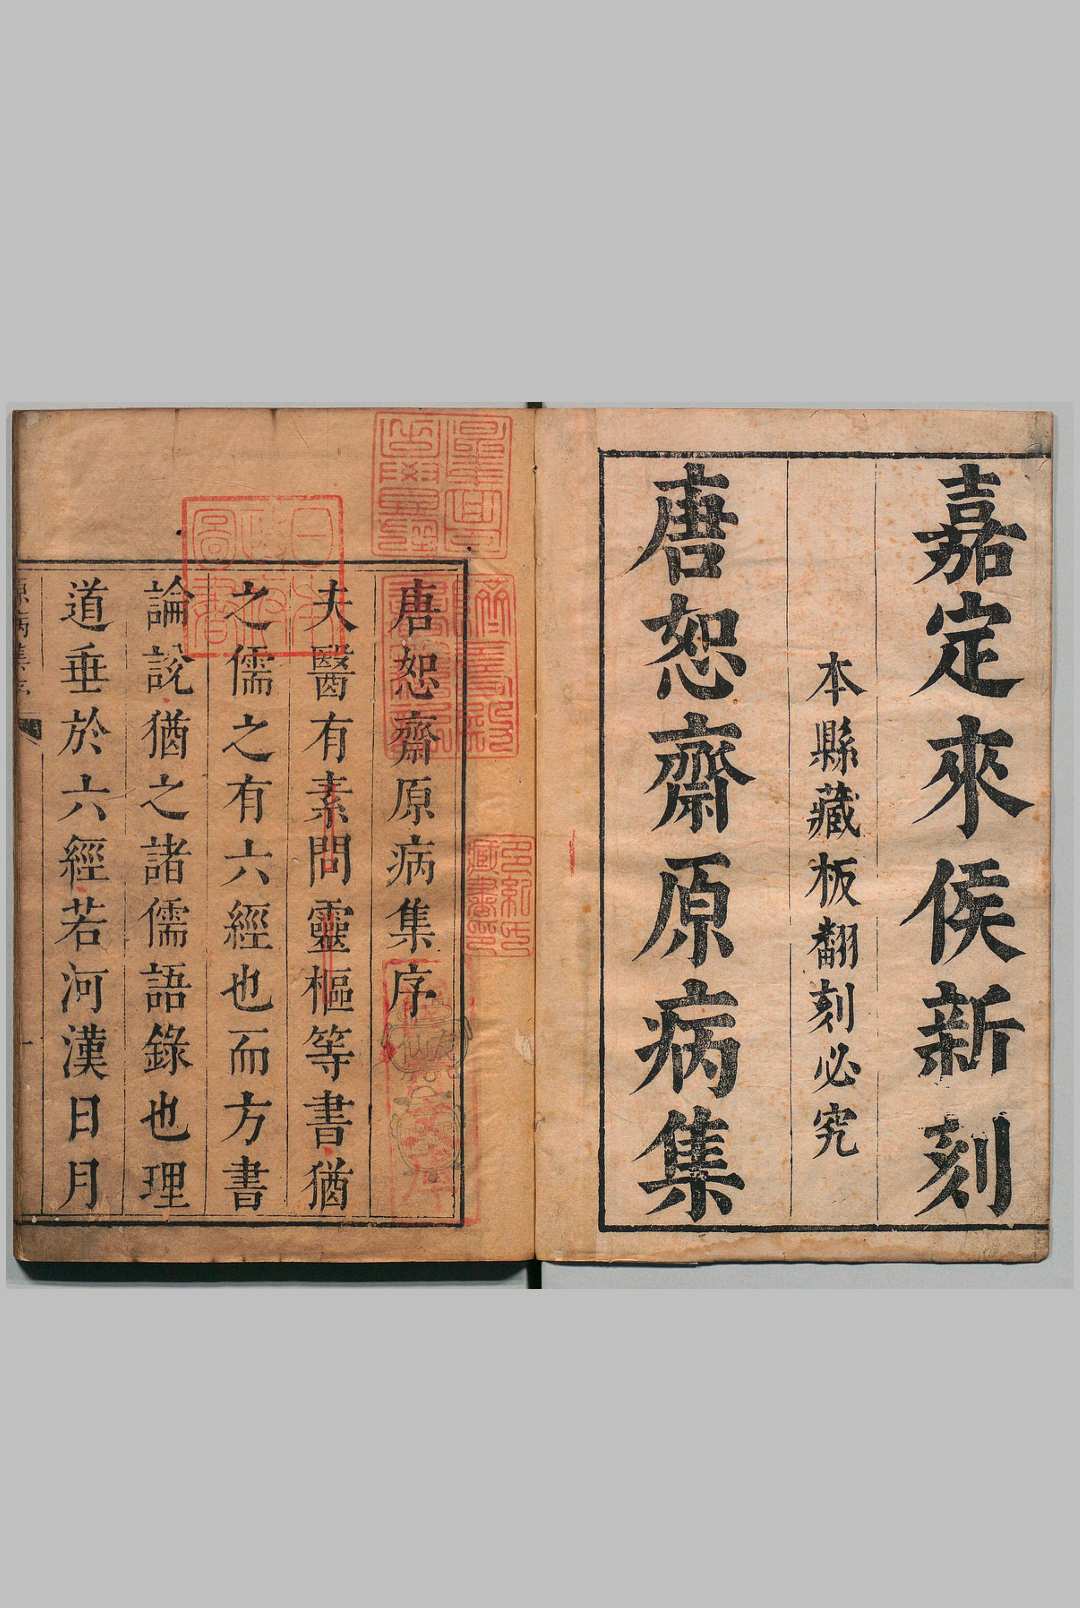 嘉定來侯新刻
本縣藏板翻刻必究
唐恕齋原病集
唐恕齋原病集序
夫醫有素問靈樞等書猶
之儒之有六經也而方書
論說猶之諸儒語錄也理
道垂於六經若河漢日月
日本政府圖書